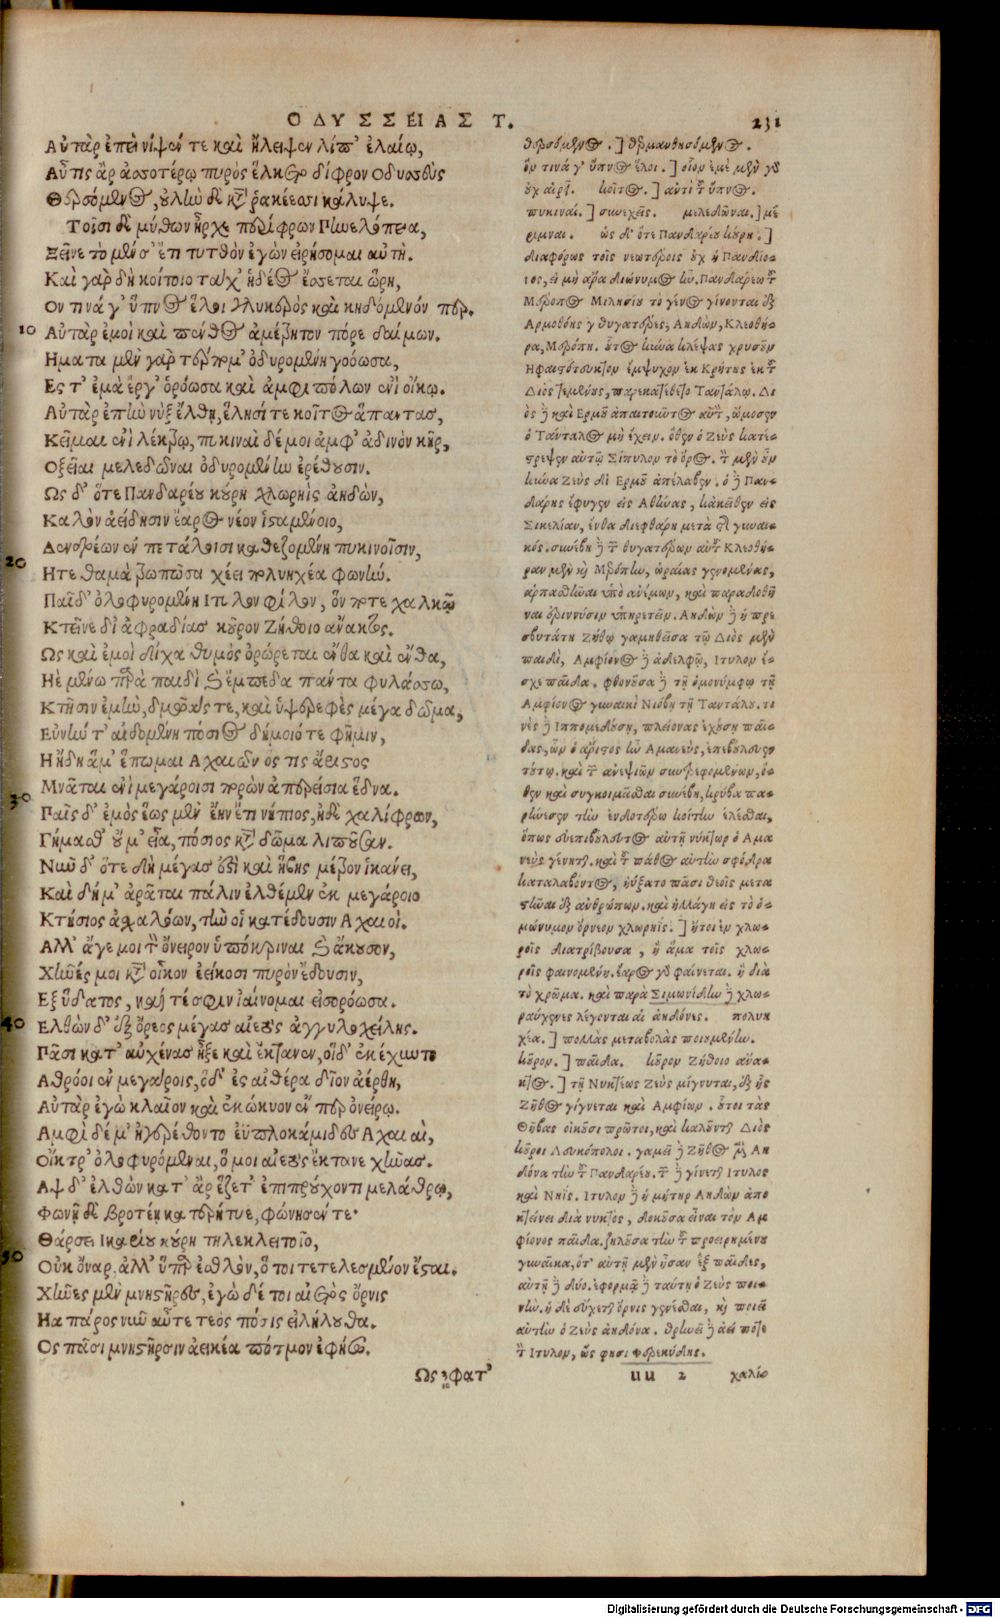 ΟΔΥΣΣΕΙΑΣ Τ. 231
Αὐτὰρ ἐπεὶ νίψεν τε καὶ ἤλειψεν λίπ' ἐλαίῳ,
Αὖτις ἂρ ἀσσοτέρω πυρὸς ἕλκετο δίφρον Οδυσσεὺς
Θερσόμενος, οὐλὴν δὲ κτ̀ ῥακέεσσι κάλυψε.
Τοῖσι δὲ μύθων ἦρχε περίφρων Πηνελόπεια,
Ξεῖνε τὸ μέν σ' ἔτι τυτθὸν ἐγὼν εἰρήσομαι αὐτὴ.
Καὶ γαρ δὴ κοίτοιο ταχ' ἡδέος ἔσσεται ὥρη,
Ον τινά γ' ὕπνος ἕλοι γλυκερὸς καὶ κηδόμενόν περ.
10 Αὐτὰρ ἐμοὶ καὶ πένθος ἀμέτρητον πόρε δαίμων.
Ηματα μὲν γαρ τέρπομ' ὀδυρομένη γοόωσα,
Ες τ' ἐμὰ ἔργ' ὁρόωσα καὶ ἀμφιπόλων ἐνὶ οἴκῳ.
Αὐτὰρ ἐπὴν νὺξ ἔλθῃ, ἕλησί τε κοῖτος ἅπαντας,
Κεῖμαι ἐνὶ λέκτρῳ, πυκιναὶ δέ μοι ἀμφ' ἀδινὸν κῆρ,
Οξεῖαι μελεδῶναι ὀδυρομένην ἐρέθουσιν.
Ως δ' ὅτε Πανδαρέου κούρη χλωρηὶς ἀηδὼν,
Καλὸν ἀείδησιν ἔαρος νέον ἱσταμένοιο,
Δενδρέων ἐν πετάλοισι καθεζομένη πυκινοῖσιν,
20 Ητε θαμὰ τρωπῶσα χέει πολυηχέα φωνήν.
Παῖδ' ὀλοφυρομένη Ιτυλον φίλον, ὅν ποτε χαλκῷ
Κτεῖνε δι' ἀφραδίας κοῦρον Ζήθοιο ἄνακτος.
Ως καὶ ἐμοὶ δίχα θυμὸς ὀρώρεται ἔνθα καὶ ἔνθα,
Ηὲ μένω παρὰ παιδὶ καὶ ἔμπεδα πάντα φυλάσσω,
Κτῆσιν ἐμὴν, δμωάς τε, καὶ ὑψερεφὲς μέγα δῶμα,
Εὐνήν τ' αἰδομένη πόσιος δήμοιό τε φῆμιν,
Η ἤδη ἅμ' ἕπωμαι Αχαιῶν ὅς τις ἄριστος
30 Μνᾶται ἐνὶ μεγάροισι πορὼν ἀπερείσια ἕδνα.
Παῖς δ' ἐμὸς ἕως μὲν ἔην ἔτι νήπιος, ἠδὲ χαλίφρων,
Γήμασθ' οὔ μ' εἴα, πόσιος κτ̀ δῶμα λιποῦσαν.
Νῦν δ' ὅτε δὴ μέγας ἐστὶ καὶ ἥβης μέτρον ἱκάνει,
Καὶ δή μ' ἀρᾶται πάλιν ἐλθέμεν ἐκ μεγάροιο
Κτήσιος ἀσχαλόων, τήν οἱ κατέδουσιν Αχαιοὶ.
Αλλ' ἄγε μοι τὸν ὄνειρον ὑπόκριναι καὶ ἄκουσον,
Χῆνές μοι κτ̀ οἶκον ἐείκοσι πυρὸν ἔδουσιν,
Εξ ὕδατος, καί τέ σφιν ἰαίνομαι εἰσορόωσα.
40 Ελθὼν δ' ἐξ ὄρεος μέγας αἰετὸς ἀγγυλοχείλης.
Πᾶσι κατ' αὐχένας ἦξε καὶ ἔκτανεν, οἵδ' ἐκέχυντο
Αθρόοι ἐν μεγάροις, ὁ δ' ἐς αἰθέρα δῖον ἀέρθη,
Αὐτὰρ ἐγὼ κλαῖον καὶ ἐκώκυον ἔν περ ὀνείρῳ.
Αμφὶ δέ μ' ἠγερέθοντο ἐϋπλοκάμιδες Αχαιαὶ,
Οἴκτρ' ὀλοφυρόμεναι, ὅ μοι αἰετὸς ἔκτανε χῆνας.
Αψ δ' ἐλθὼν κατ' ἂρ ἕζετ' ἐπιπροὔχοντι μελάθρῳ,
Φωνῇ δὲ βροτέῃ κατερήτυε, φώνησέν τε·
Θάρσει Ικαρίου κούρη τηλεκλειτοῖο,
50 Οὐκ ὄναρ, ἀλλ' ὕπαρ ἐσθλὸν, ὅ τοι τετελεσμένον ἔσται.
Χῆνες μὲν μνηστῆρες, ἐγὼ δέ τοι αἰετὸς ὄρνις
Ηα πάρος νῦν αὖτε τεὸς πόσις εἰλήλουθα.
Ος πᾶσι μνηστῆρσιν ἀεικέα πότμον ἐφήσω.
Ως ἔφατ'
θερσόμενος.] θερμανθησόμενος.
ὅν τινά γ' ὕπνος ἕλοι.] οἷον ἐμὲ μὲν γὰρ
οὐχ αἱρεῖ. κοῖτος.] ἀντὶ τοῦ ὕπνος.
πυκιναί.] συνεχεῖς. μελεδῶναι.] μέ
ριμναι. ὡς δ' ὅτε Πανδαρέου κούρη.]
διαφόρως τοῖς νεωτέροις οὐχ ἡ Πανδίο-
νος, εἰ μὴ ἄρα διώνυμος ἦν. Πανδάρεω τοῦ
Μέροπος Μιλησίου τὸ γένος γίνονται ἐξ
Αρμοθόης γ θυγατέρες, Αηδὼν, Κλεοθή-
ρα, Μερόπη. οὗτος κύνα κλέψας χρυσοῦν
Ηφαιστότευκτον ἔμψυχον ἐκ Κρήτης ἐκ τοῦ
Διὸς τεμένους, παρακατέθετο Ταντάλῳ. Δι
ὸς δὲ καὶ Ερμοῦ ἀπαιτοῦντος αὐτὸν, ὤμοσεν
ὁ Τάνταλος μὴ ἔχειν. ὅθεν ὁ Ζεὺς κατέ-
στρεψεν αὐτῷ Σίπυλον τὸ ὄρος. τὸν μὲν οὖν
κύνα Ζεὺς δι' Ερμοῦ ἀπέλαβεν. ὁ δὲ Παν-
δάρης ἔφυγεν εἰς Αθήνας, κἀκεῖθεν εἰς
Σικελίαν, ἔνθα διεφθάρη μετὰ τῆς γυναι-
κός. συνέβη δὲ τὰς θυγατέρων αὐτοῦ Κλεοθή-
ραν μὲν καὶ Μερόπην, ὡραίας γενομένας,
ἁρπασθῆναι ὑπὸ ἀνέμων, καὶ παραδοθῆ
ναι ἐριννύσιν ὑπηρετεῖν. Αηδὼν δὲ ἡ πρε
σβυτάτη Ζήθῳ γαμηθεῖσα τῷ Διὸς μὲν
παιδὶ, Αμφίονος δὲ ἀδελφῷ, Ιτυλον ἔ-
σχε παῖδα. φθονοῦσα δὲ τῇ ὁμονύμφῳ τῇ
Αμφίονος γυναικὶ Νιόβῃ τῇ Ταντάλου. το
νὲς δὲ Ιππομεδούσῃ, πλείονας ἐχούσῃ παῖ-
δας, ὧν ὁ ἄριστος ἦν Αμανεὺς, ἐπεβούλευσε
τούτῳ. καὶ τῶν ἀνεψιῶν συντρεφομένων, ὅ-
θεν καὶ συγκοιμᾶσθαι συνέβη, κρύβα πα-
ρῄνεσεν τὴν ἐνδοτέρω κοίτην ἑλέσθαι,
ὅπως εὐεπιβούλευτος αὐτῇ νύκτωρ ὁ Αμα
νεὺς γένηται. καὶ τοῦ πάθους αὐτὴν σφόδρα
καταλαβόντος, ηὔξατο πᾶσι θεοῖς μετα
στῆναι ἐξ ἀνθρώπων. καὶ ἠλλάγη εἰς τὸ ὁ-
μώνυμον ὄρνεον χλωρηίς.] ἤτοι ἐν χλω-
ροῖς διατρίβουσα, ἢ ἅμα τοῖς χλω-
ροῖς φαινομένη. ἔαρος γὰρ φαίνεται. ἢ διὰ
τὸ χρῶμα. καὶ παρὰ Σιμωνίδῃ δὲ χλω-
ραύχενες λέγονται αἱ ἀηδόνες. πολυη
χέα.] πολλὰς μεταβολὰς ποιουμένην.
κοῦρον.] παῖδα. κοῦρον Ζήθοιο ἄνα-
κτος.] τῇ Νυκτέως Ζεὺς μίγνυται, ἐξ ἧς
Ζῆθος γίγνεται καὶ Αμφίων. οὗτοι τὰς
Θήβας οἰκοῦσι πρῶτοι, καὶ καλοῦνται Διὸς
κοῦροι Λευκόπωλοι. γαμεῖ δὲ Ζῆθος μὲν Αη
δόνα τὴν τοῦ Πανδαρέου. τῶν δὲ γίνεται Ιτυλος
καὶ Νηίς. Ιτυλον δὲ ἡ μήτηρ Αηδὼν ἀπο
κτείνει διὰ νυκτὸς, δοκοῦσα εἶναι τὸν Αμ
φίονος παῖδα. ζηλοῦσα τὴν τοῦ προειρημένου
γυναῖκα, ὅτ' αὐτῇ μὲν ἦσαν ἓξ παῖδες,
αὐτῇ δὲ δύο. ἐφορμᾷ δὲ ταύτῃ ὁ Ζεὺς ποι-
νήν. ἡ δὲ εὔχεται ὄρνις γενέσθαι, καὶ ποιεῖ
αὐτὴν ὁ Ζεὺς ἀηδόνα. θρηνεῖ δὲ ἀεί ποτε
τὸν Ιτυλον, ὥς φησι φερεκύδης.
uu 2 χαλίφ
Digitalisierung gefördert durch die Deutsche Forschungsgemeinschaft - DFG